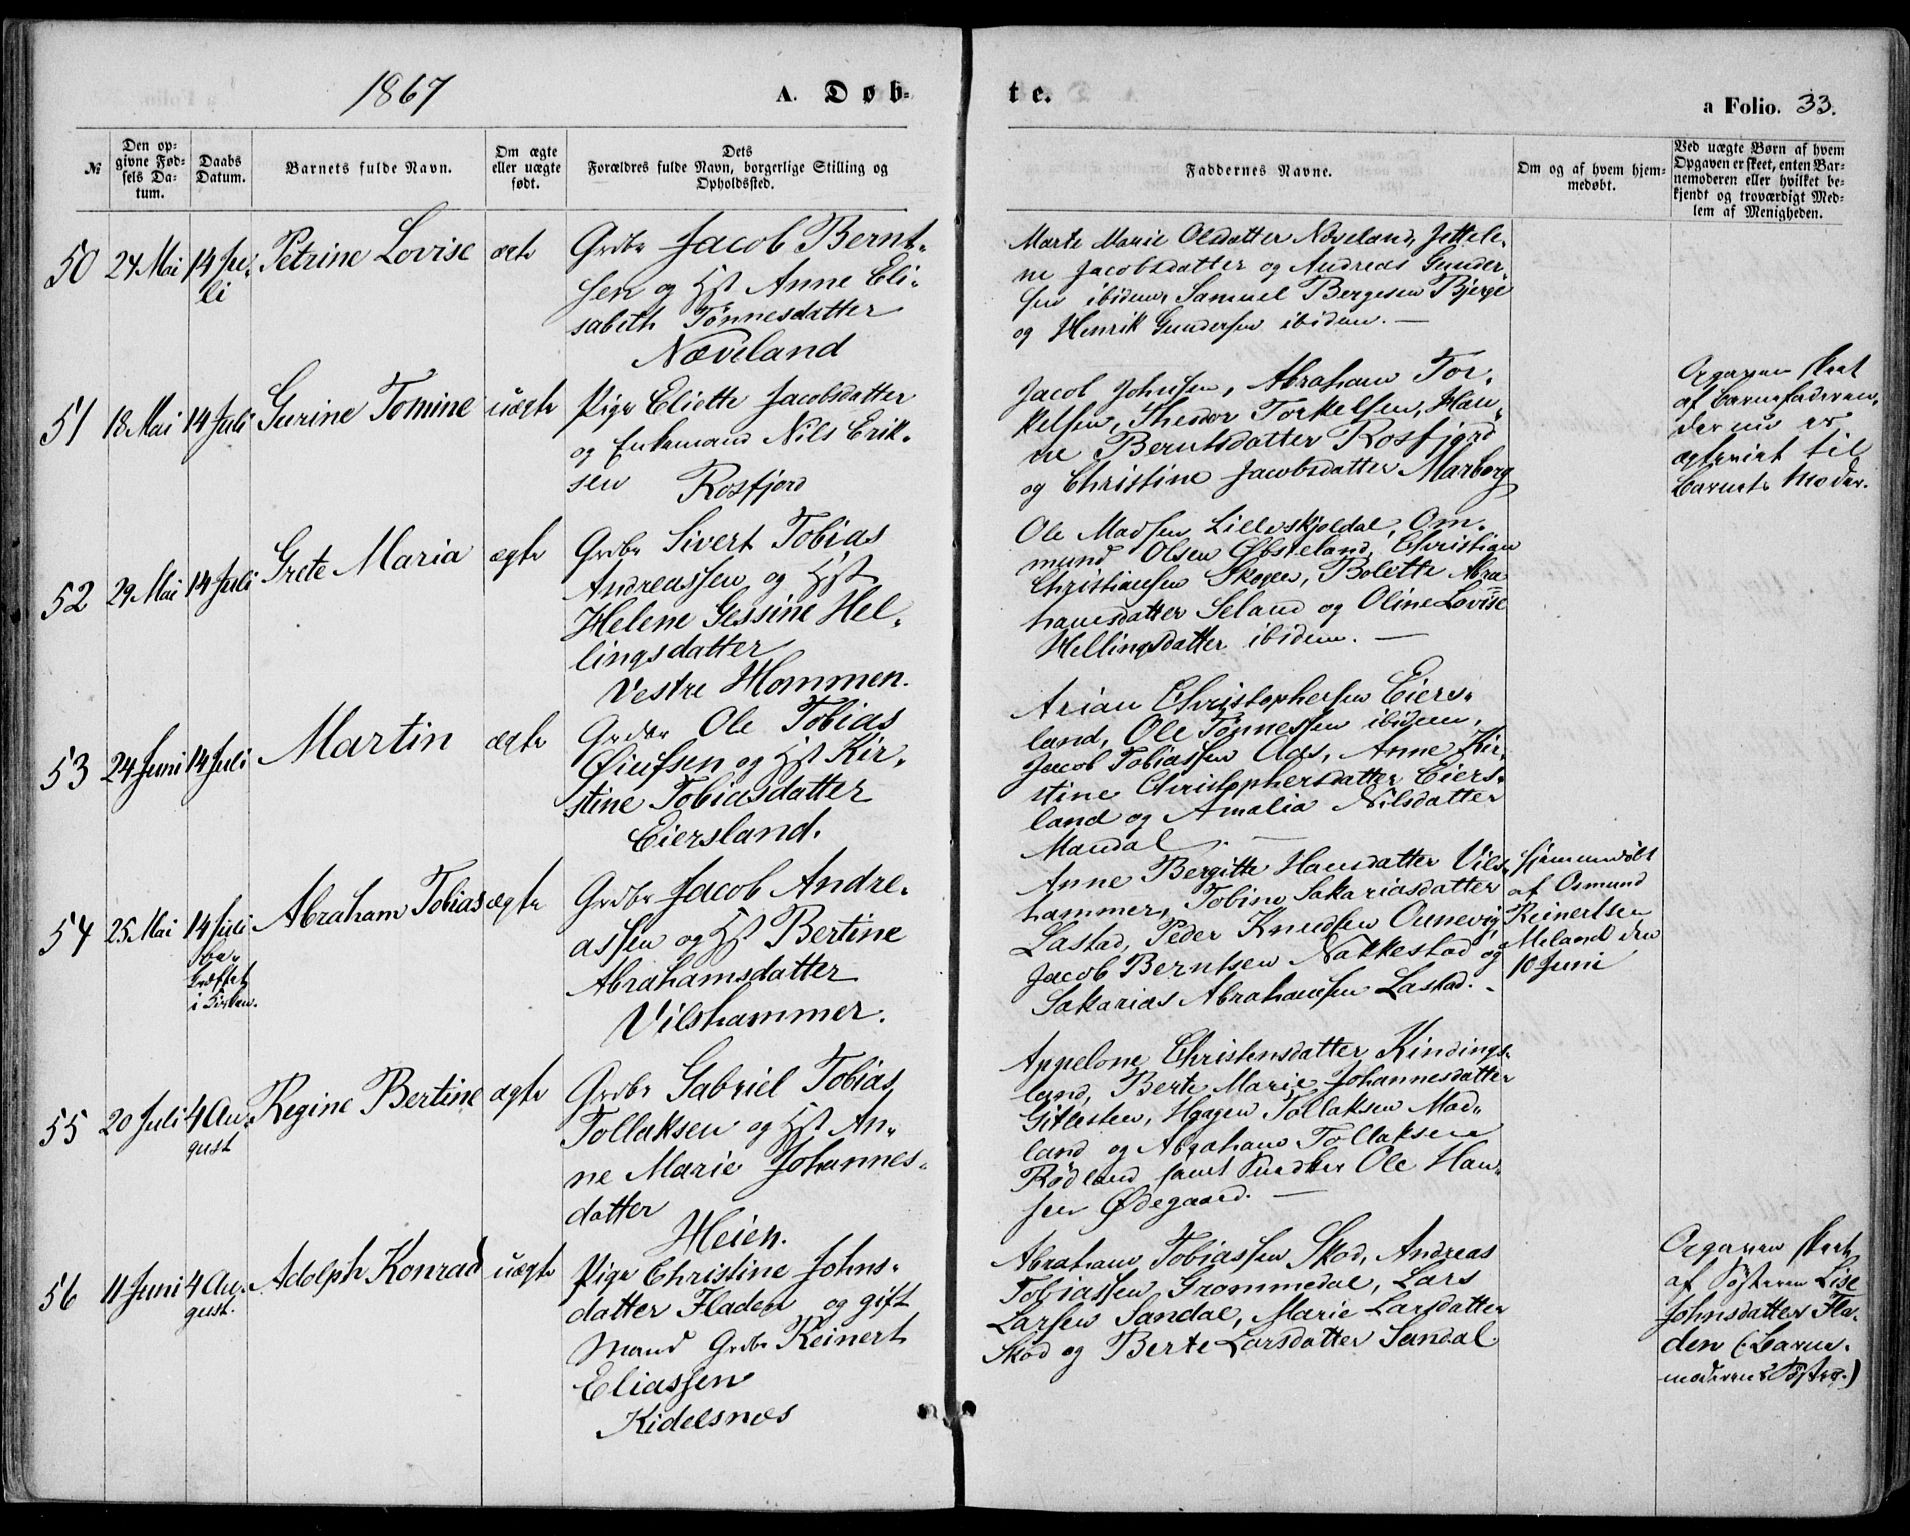 1867
A. Døb-
te.
a Folio. 33.
№
Den op-
givne Fød-
sels Da-
tum.
Daabs
Datum.
Barnets fulde Navn.
Om ægte
eller uægte
født.
Dets
Forældres fulde Navn, borgerlige Stilling og
Opholdssted.
Faddernes Navne.
Om og af hvem hjem-
medøbt.
Ved uægte Børn af hvem
Opgaven er skeet, enten Bar-
nemoderen eller hvilket be-
kjendt og troværdigt Med-
lem af Menigheden.
50
24 Mai
14 Ju-
li
Petrine Lovise
ægte
Grdbr Jacob Bernt-
sen og Hst Anne Eli-
sabeth Tønnesdatter
Næveland
Marte Marie Olsdatter Næveland, Jettele-
ne Jacobsdatter og Andreas Gunder-
sen ibidem, Samuel Bergesen Bjerge
og Henrik Gundersen ibidem. —
51
18 Mai
14 Juli
Gurine Tomine
uægte
Pige Eliette Jacobsdatter
og Enkemand Nils Erik-
sen Rosfjord
Jacob Johnsen, Abraham Tor-
kelsen, Theodor Torkelsen, Han-
ne Berntsdatter Rosfjord
og Christine Jacobsdatter Marberg
Opgaven skeet
af Barnefaderen,
der nu er
ægteviet til
Barnets Moder.
52
29 Mai
14 Juli
Grete Maria
ægte
Grdbr Sivert Tobias
Andreassen og Hst
Helene Gessine Hel-
lingsdatter
Vestre Hommen.
Ole Madsen Lilleskjoldal, Om-
mund Olsen Øbsteland, Christian
Christiansen Skogen, Bolette Abra
hamsdatter Seland og Oline Lovise
Hellingsdatter ibidem. —
53
24 Juni
14 Juli
Martin
ægte
Grdbr Ole Tobias
Øiufsen og Hst Kir-
stine Tobiasdatter
Eiersland.
Arian Christophersen Eiers-
land, Ole Tønnessen ibidem,
Jacob Tobiassen Aas, Anne Kir-
stine Christophersdatter Eiers-
land og Amalia Nilsdatter
Mandal. —
54
25 Mai
14 Juli
i Kirken.
Abraham Tobias
ægte
Grdbr Jacob Andre-
assen og Hst Bertine
Abrahamsdatter
Vilshammer.
Anne Bergitte Hansdatter Vils-
hammer, Tobine Sakariasdatter
Lastad, Peder Knudsen Ounevig,
Jacob Berntsen Nakkestad og
Sakarias Abrahamsen Lastad. -
Hjemmedøbt
af Osmund
Reinertsen
Meland den
10 Juni
55
20 Juli
4 Au-
gust
Regine Bertine
ægte
Grdbr Gabriel Tobias
Tollaksen og Hst An-
ne Marie Johannes-
datter
Heien.
Appelone Christensdatter Kindings-
land, Berte Marie Johannesdatter
Gitlesten, Haagen Tollaksen Mad-
land og Abraham Tollaksen
Rødland samt Ole Han-
sen Ødegaard. —
56
11 Juni
4 Au-
gust.
Adolph Konrad
uægte
Pige Christine Johns-
datter Fladen og gift
Mand Grdbr Reinert
Eliassen
Kidelsnæs
Abraham Tobiassen Skad, Andreas
Tobiassen Grommedal, Lars
Larsen Sandal, Marie Larsdatter
Skad og Berte Larsdatter Sandal.
Opgaven skeet
af Søsteren Lise
Johnsdatter Fla-
den (Barne-
moderens Søster.)